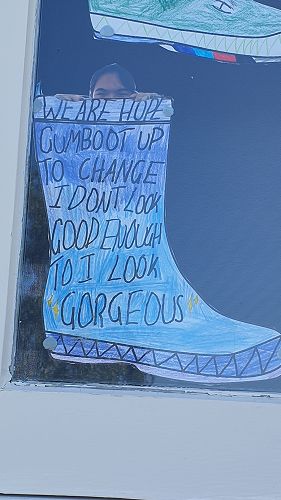 WE ARE HOPE
GUMBOOT UP
TO CHANGE
I DONT LOOK
GOOD ENOUGH
TO I LOOK
GORGEOUS